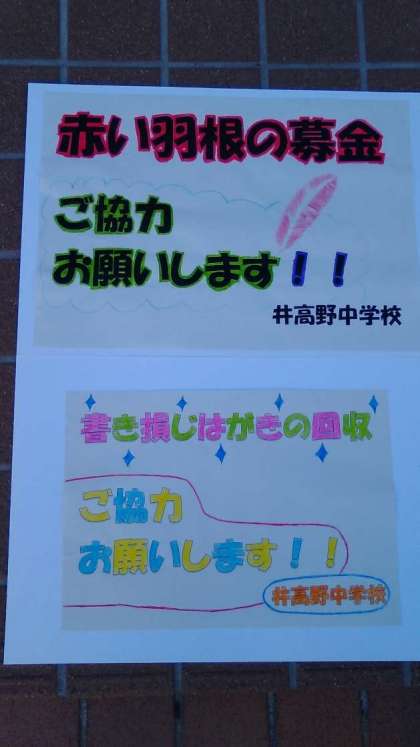 赤い羽根の募金
ご協力
お願いします！！
井高野中学校
書き損じはがきの回収
ご協力
お願いします！！
井高野中学校